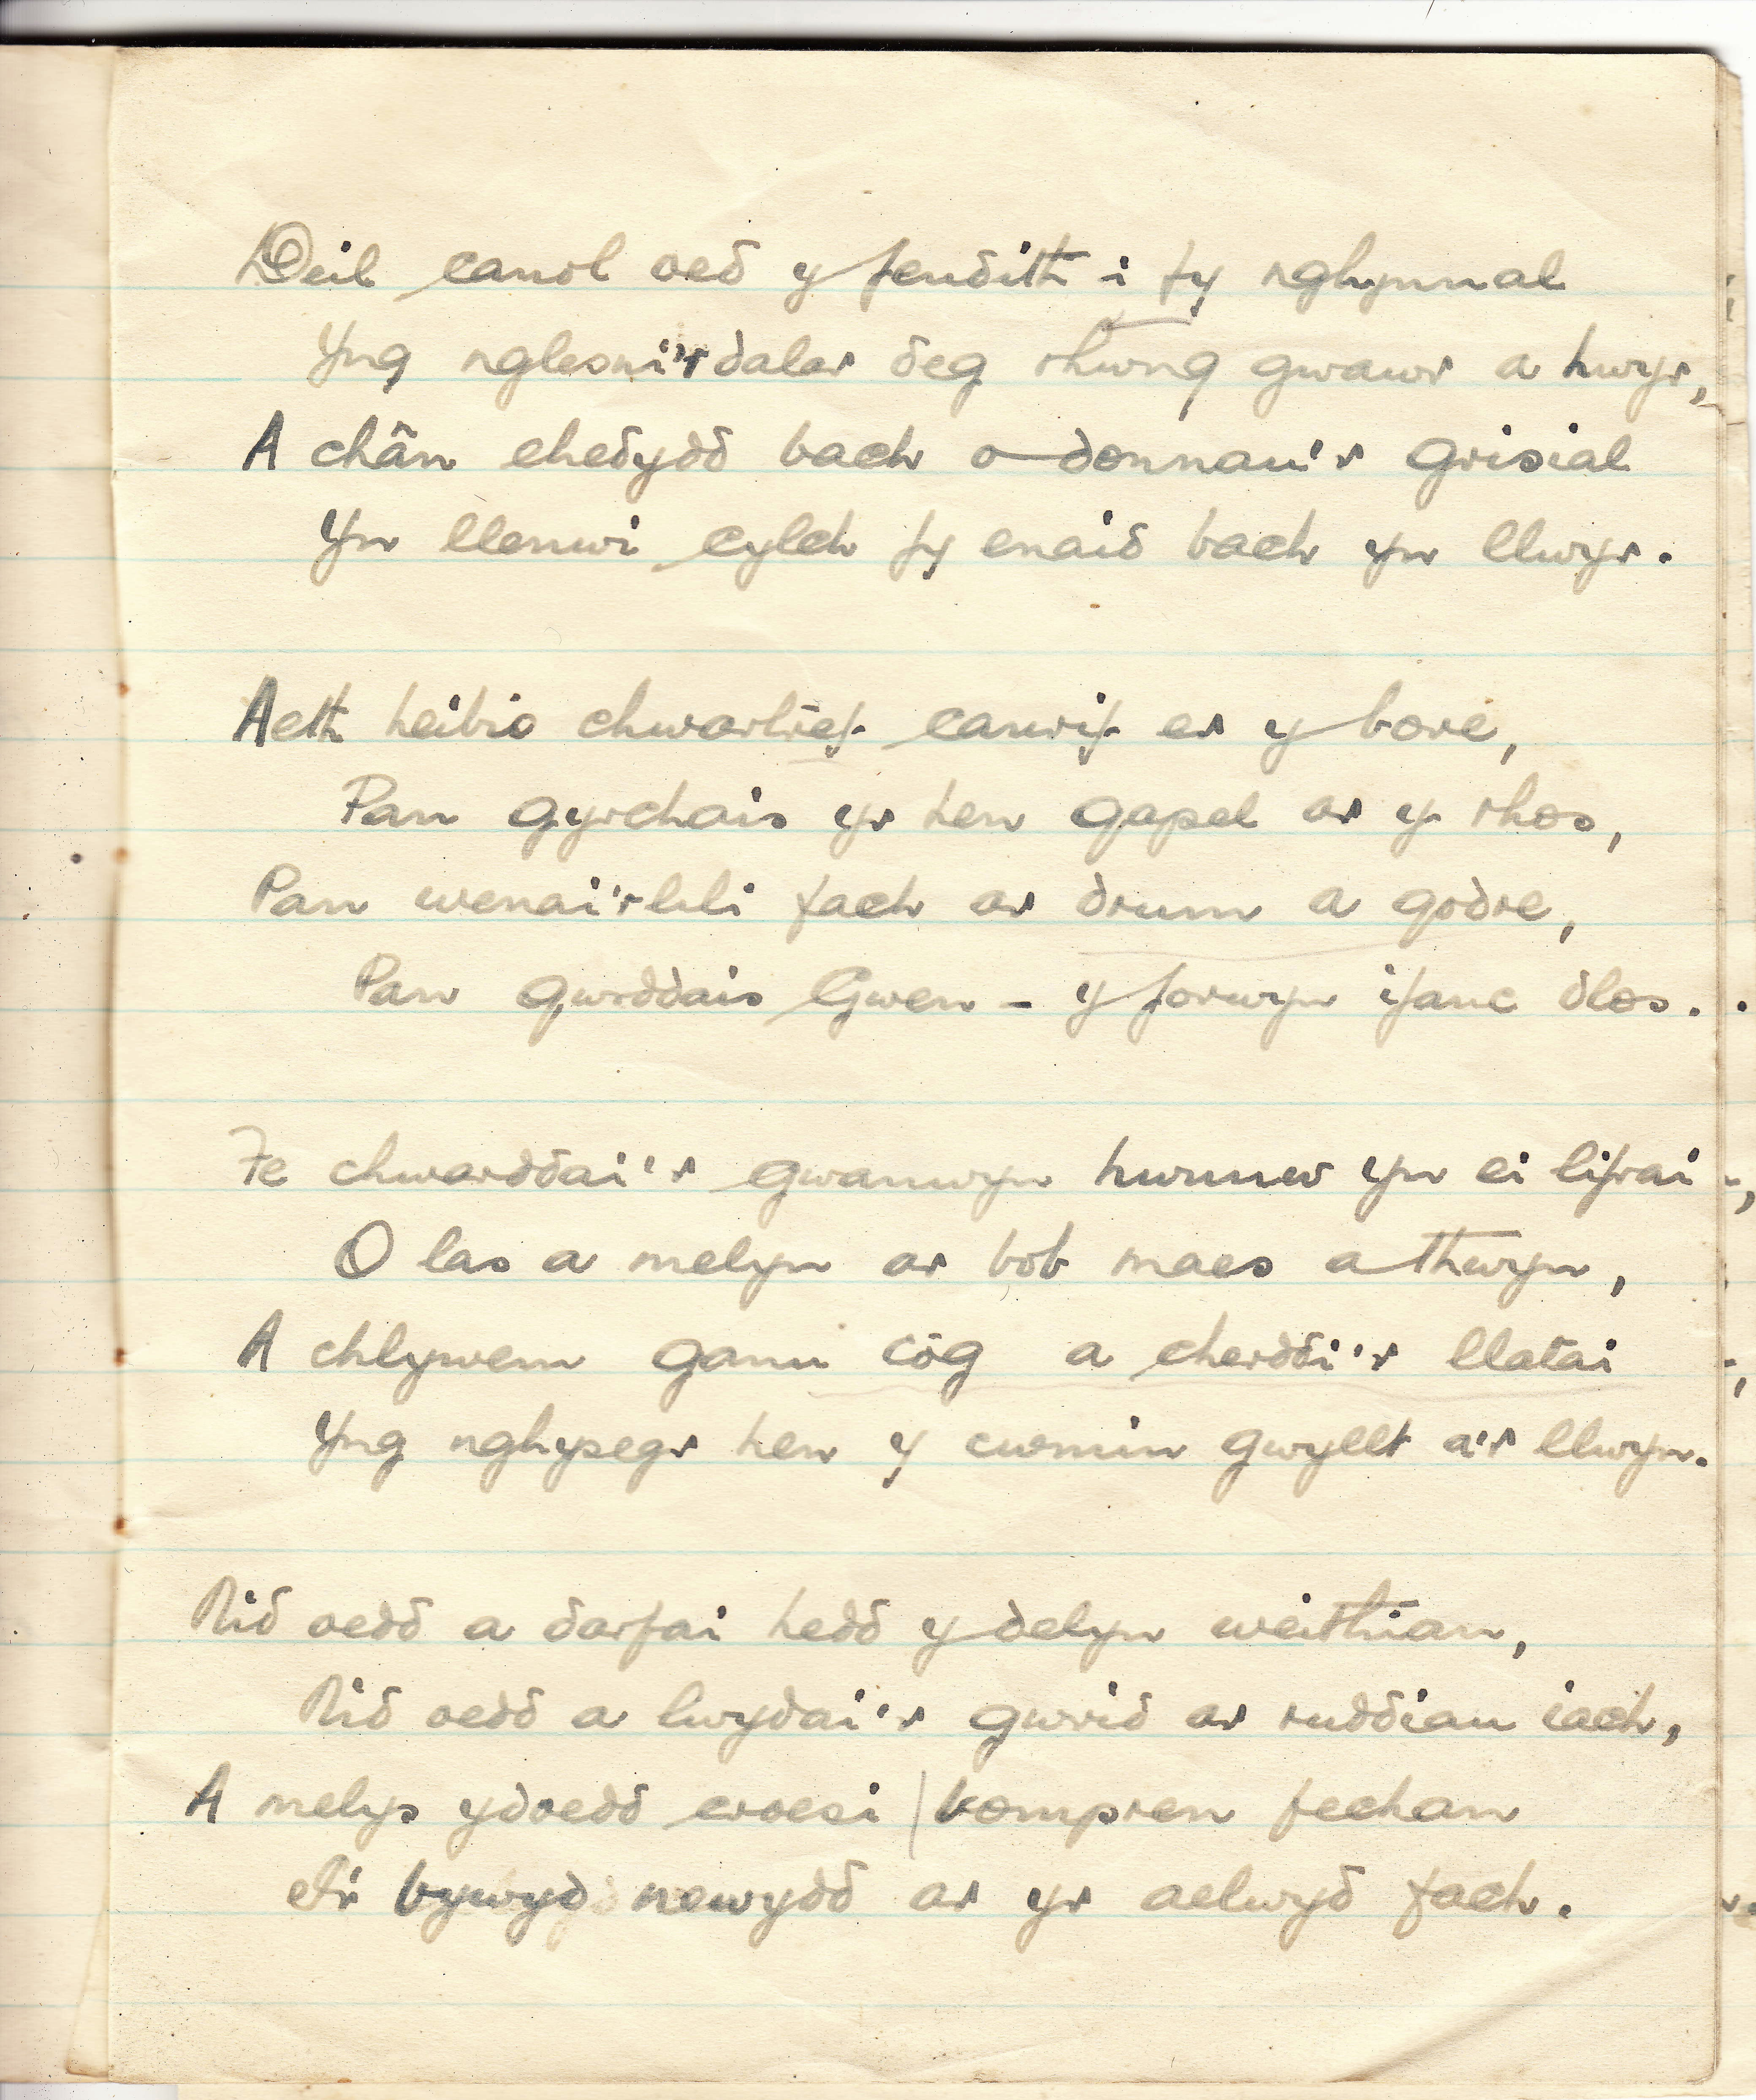 Deil canol oed y fendith i fy nghynnal
Yng nglesni'r dalar deg rhwng gwawr a hwyr,
A chân ehedydd bach o donnau'r grisial
Yn llenwi cylch fy enaid bach yn llwyr.
Aeth heibio chwarter canrif er y bore,
Pan gyrchais yr hen gapel ar y rhos,
Pan wenai'r lili fach ar drum a godre,
Pan gwrddais Gwen - y forwyn ifanc dlos.
Fe chwarddai'r gwanwyn hwnnw yn ei lifrai
O las a melyn ar bob maes a thwyn,
A chlywem ganu côg a cherddi'r llatai
Yng nghysegr hen y comin gwyllt a'r llwyn.
Nid oedd a darfai hedd y delyn weithian,
Nid oedd a lwydai'r gwrid ar ruddiau iach,
A melys ydoedd croesi bompren fechan
I'r bywyd newydd ar yr aelwyd fach.